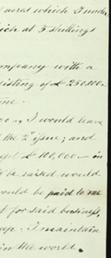 acres which I make
ich at 5 shillings
company with a
isting of £ 250,000
ne.
00, I would leave
the 2d issue; and
£ 100,000 — in
be raised would
would be paid to me
t for said business,
I maintain
in the world.